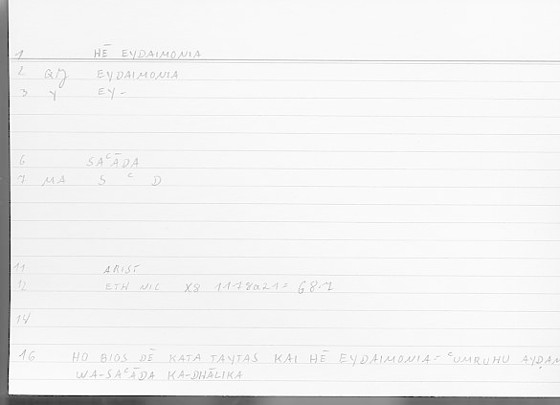 1 HĒ EYDAIMONIA
2 EYDAIMONIA
3 Y EY-
6 SAʿĀDA
7 MA S ʿ D
11 ARIST
12 ETH NIC X8 1178a21=
14
16 HO BIOS DĒ KATA TAYTAS KAI HĒ EYDAIMONIA= ʿUMRUHU AYḌAN
WA-SAʿĀDA KA-DHĀLIKA